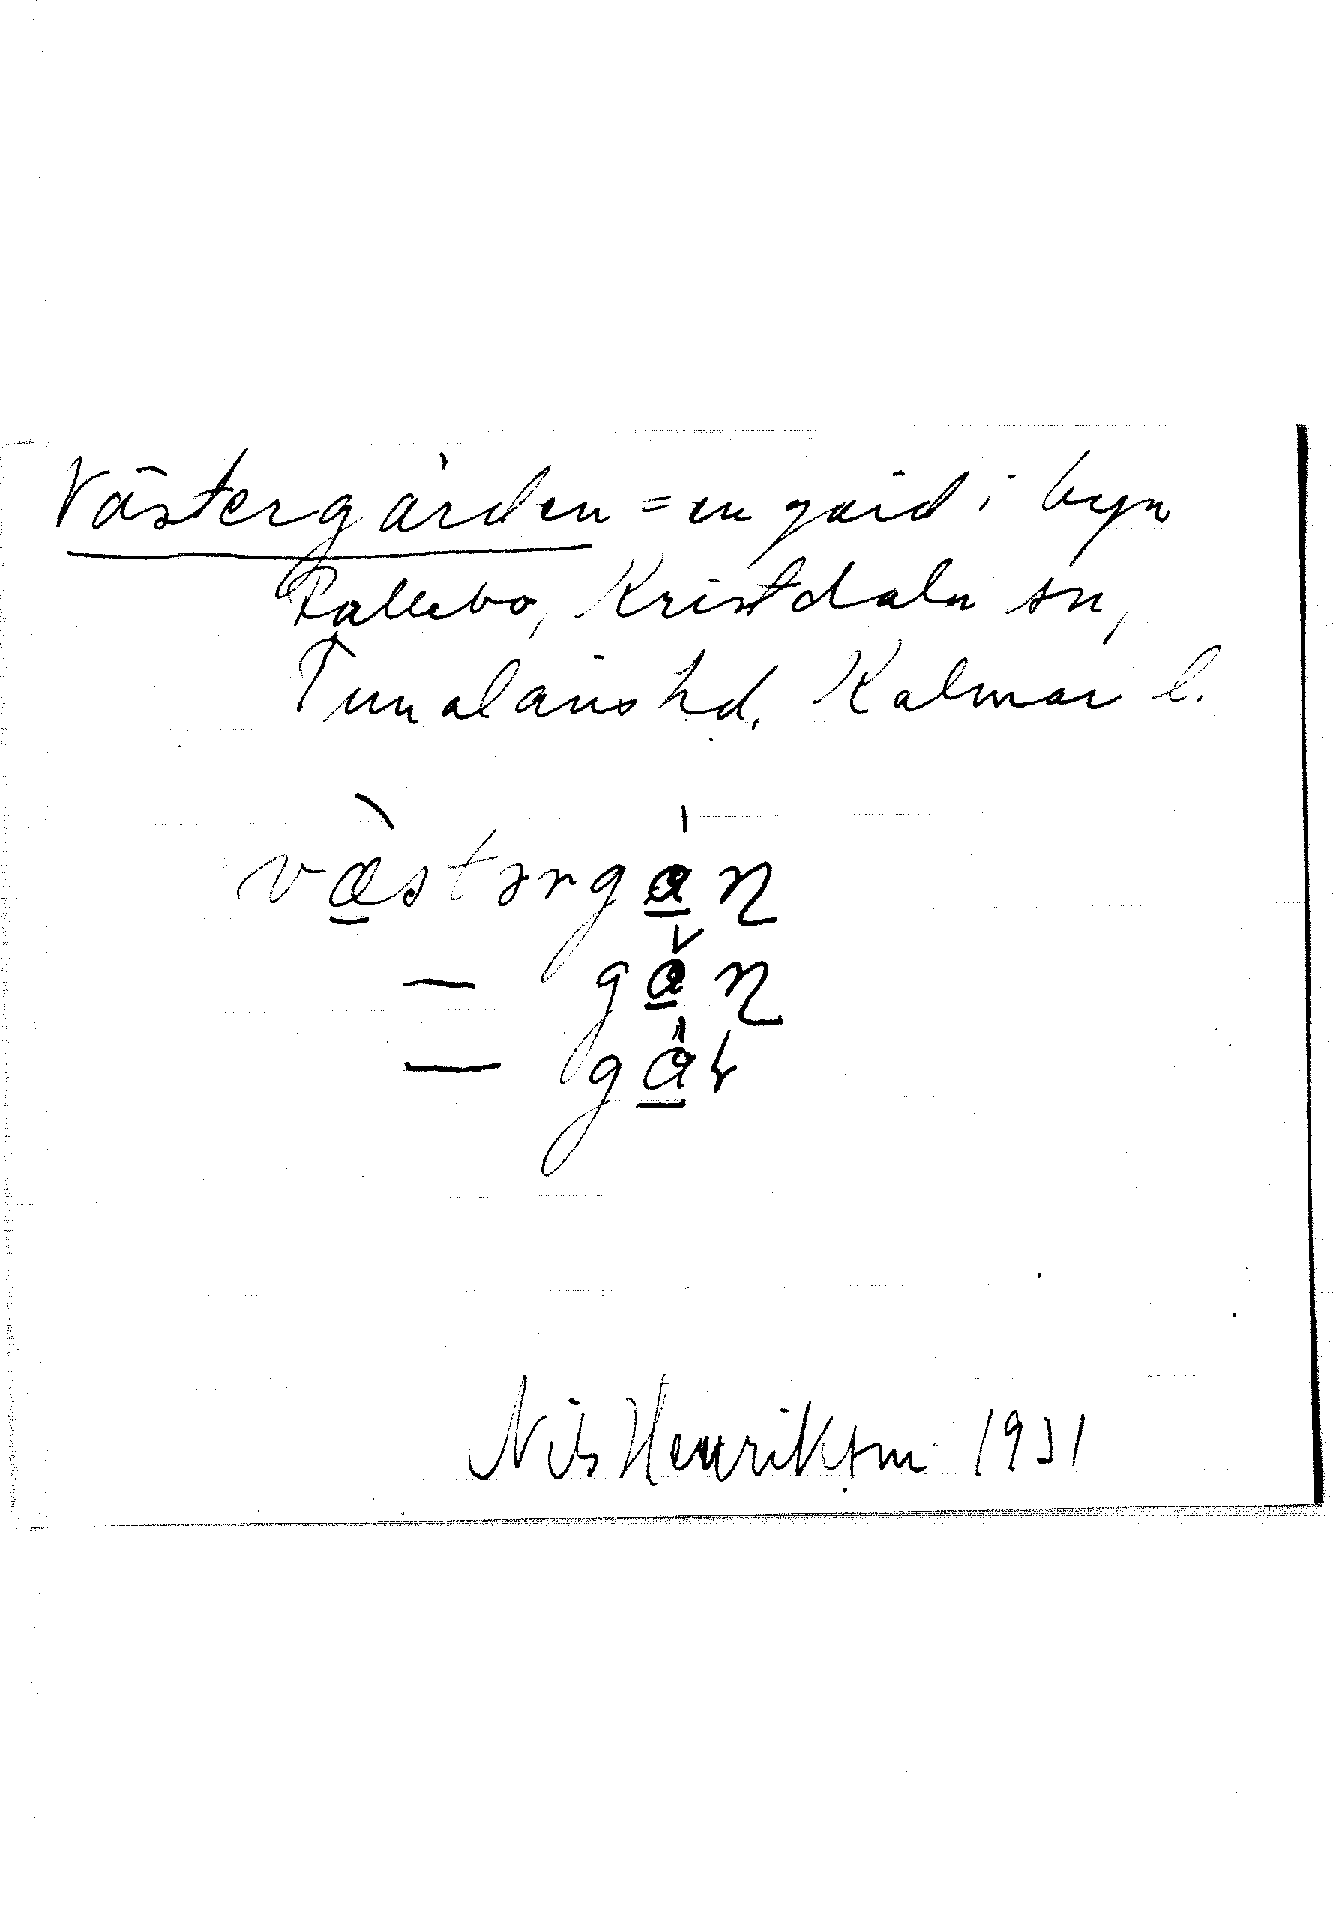 Västergården = en gård i byn
Rallebo, Kristdala sn,
Tunaläns hd. Kalmar l.
væstərgan
— gan
— gar
Nils Henrikson 1931